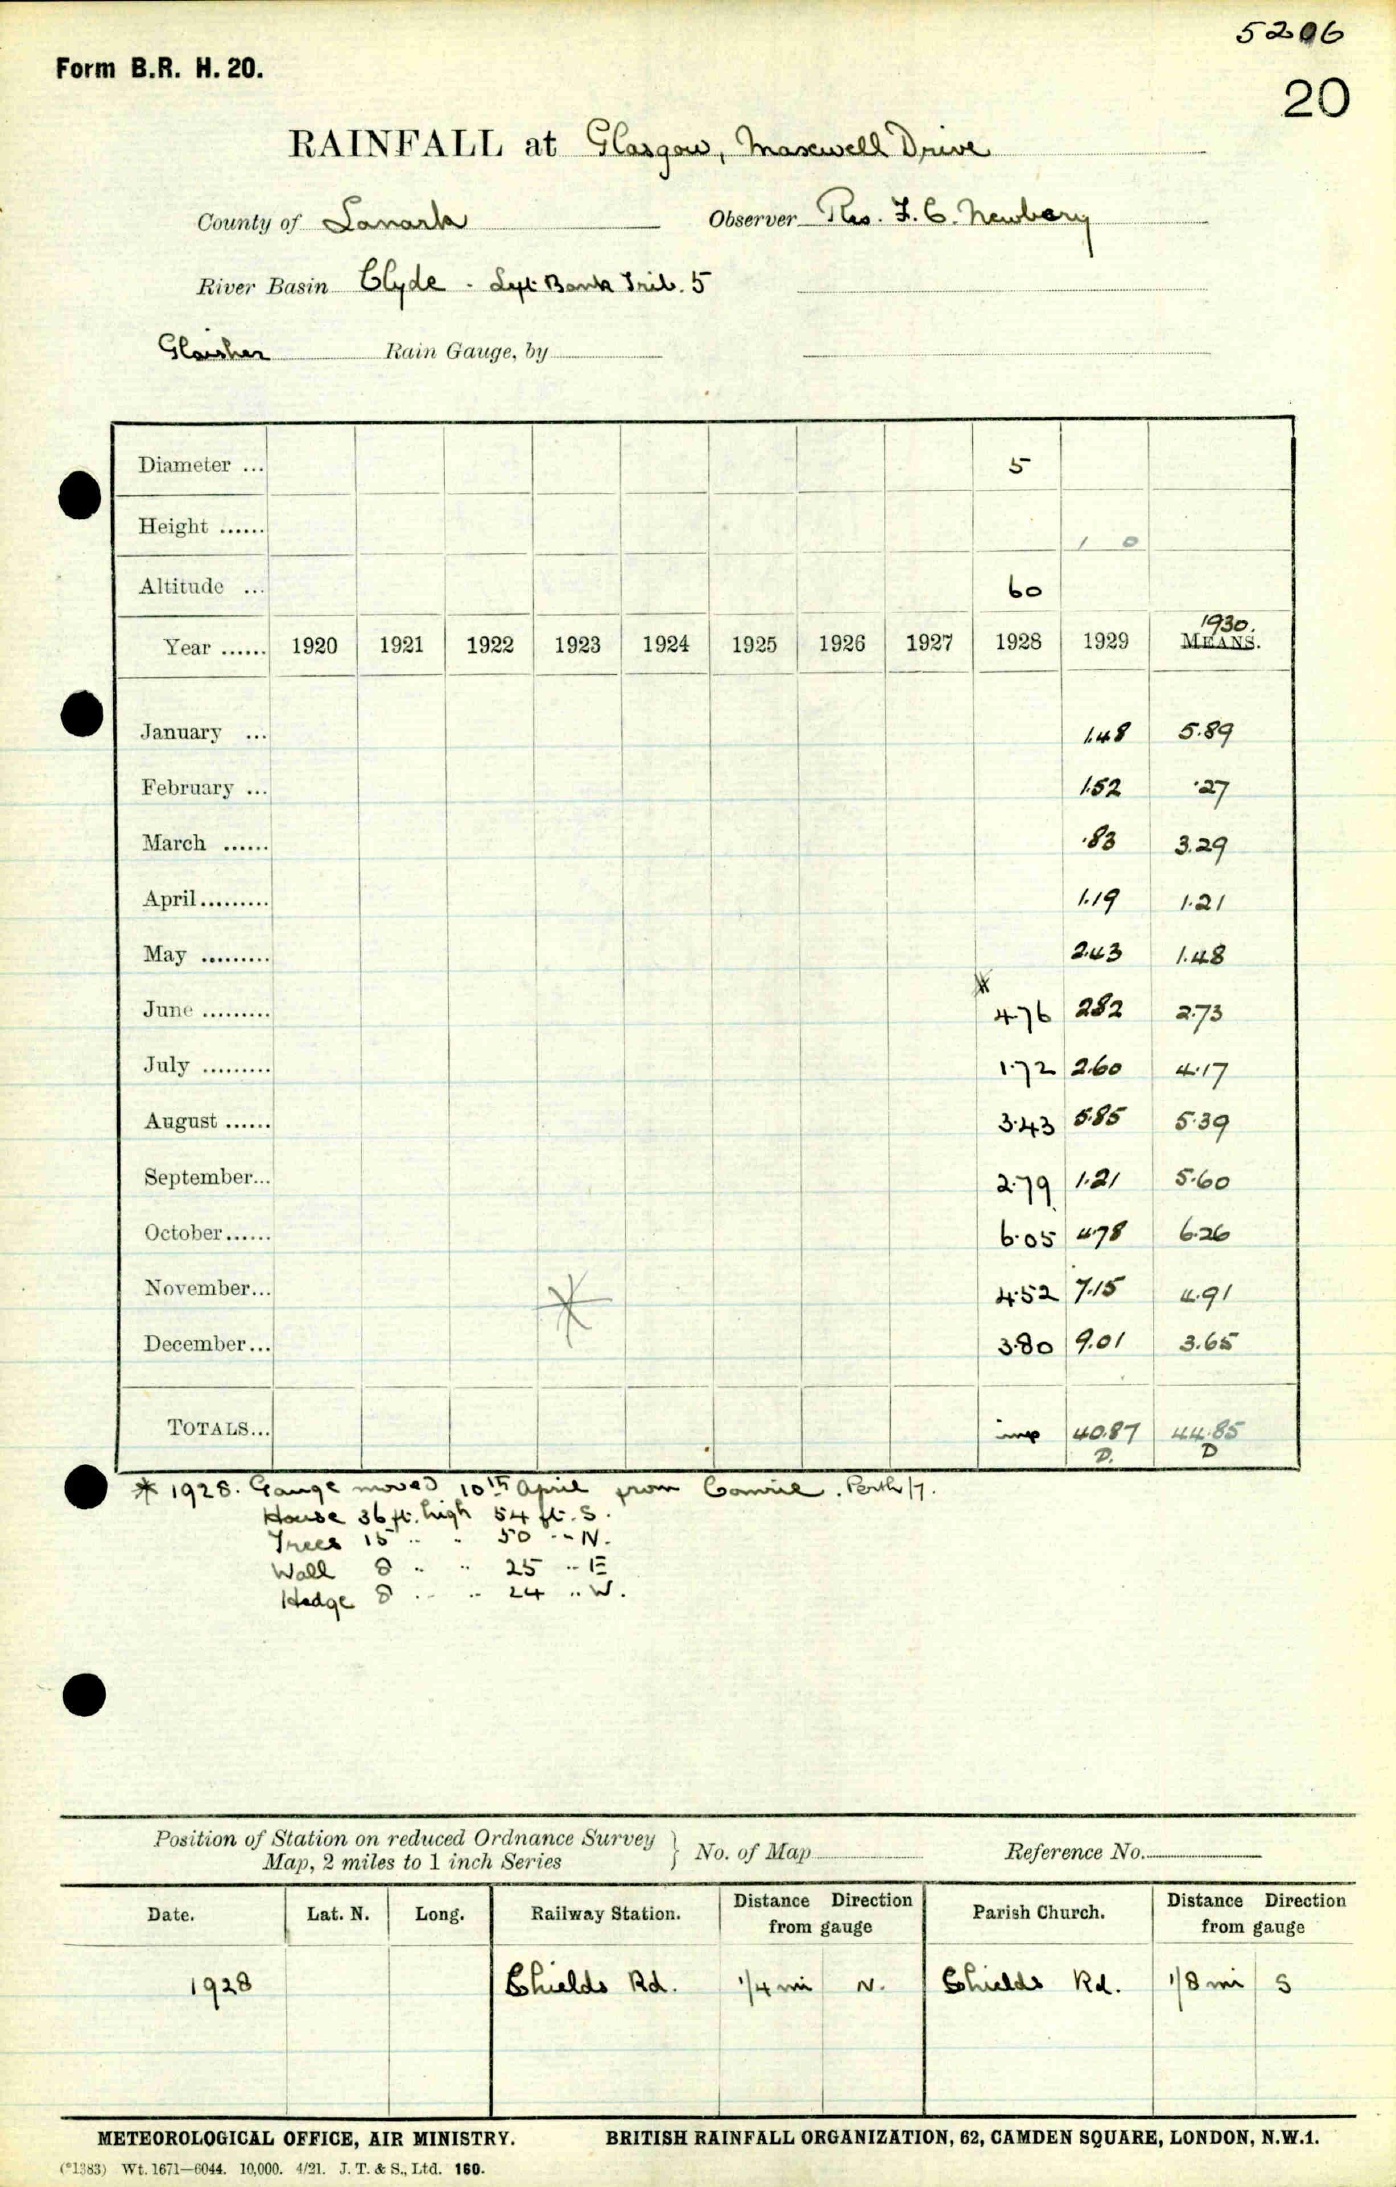 5206
Form B.R. H. 20.
20
RAINFALL at Glasgow, Maxwell Drive
County of Lanark Observer Res. F. C. Newbery
River Basin Clyde - Left Bank Trib. 5
Glaisher Rain Gauge, by
Diameter ... 5
Height ...... 1 0
Altitude ... 60
1930.
Year ...... 1920 1921 1922 1923 1924 1925 1926 1927 1928 1929 MEANS.
January ... 1.48 5.89
February ... 1.52 .27
March ...... .83 3.29
April ......... 1.19 1.21
May ......... 2.43 1.48
*
June ......... 4.76 2.82 2.73
July ......... 1.72 2.60 4.17
August ...... 3.43 5.85 5.39
September... 2.79 1.21 5.60
October...... 6.05 4.78 6.26
November... 4.52 7.15 4.91
December... 3.80 9.01 3.65
*
TOTALS... imp 40.87 44.85
D. D
* 1928. Gauge moved 10th April from Comrie. Perth/7.
House 36 ft. high 54 ft. S.
Trees 15 " " 50 " N.
Wall 8 " " 25 " E
Hedge 8 " " 24 " W.
Position of Station on reduced Ordnance Survey
Map, 2 miles to 1 inch Series } No. of Map Reference No.
Date. Lat. N. Long. Railway Station. Distance Direction from gauge Parish Church. Distance Direction from gauge
1928 Shields Rd. 1/4 mi N. Shields Rd. 1/8 mi S
METEOROLOGICAL OFFICE, AIR MINISTRY. BRITISH RAINFALL ORGANIZATION, 62, CAMDEN SQUARE, LONDON, N.W.1.
(*1383) Wt. 1671—6044. 10,000. 4/21. J. T. & S., Ltd. 160.